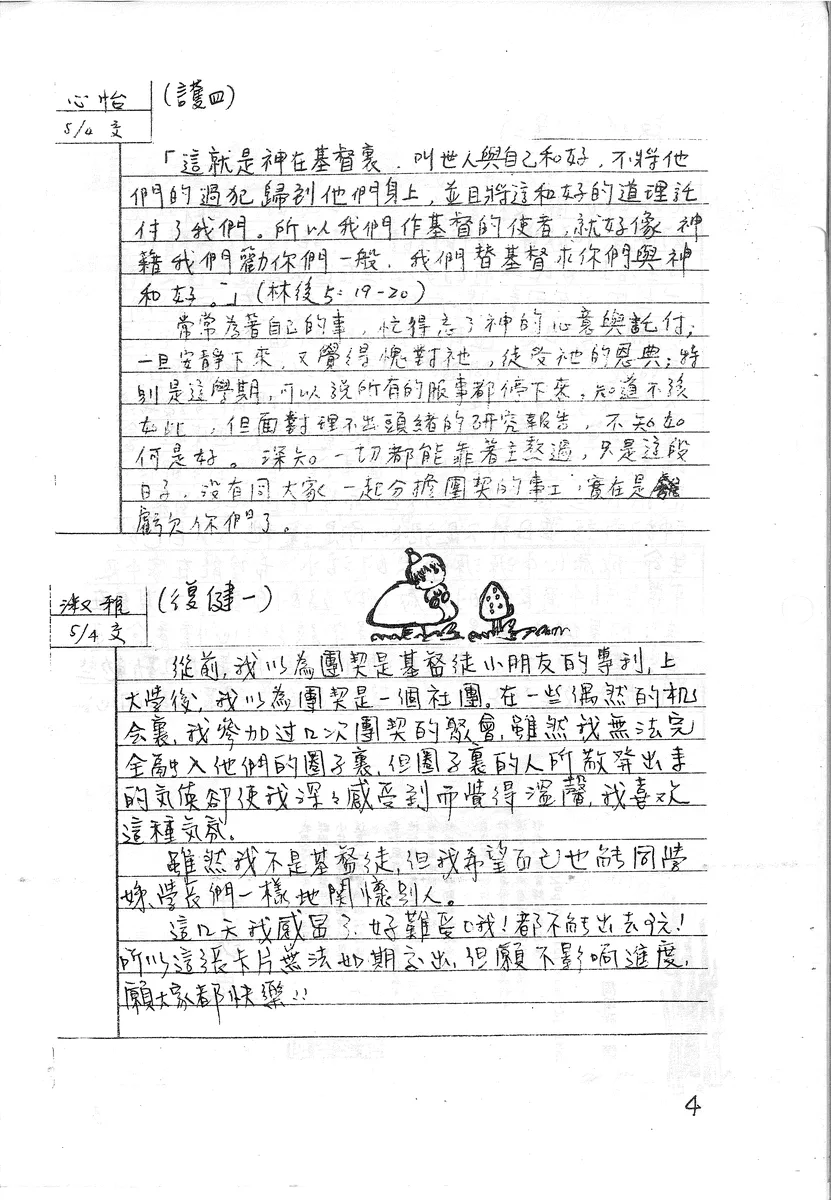 心怡
(護四)
5/4 交
「這就是神在基督裏．叫世人與自己和好．不將他
們的過犯歸到他們身上，並且將這和好的道理託
付了我們。所以我們作基督的使者，就好像 神
藉我們勸你們一般．我們替基督求你們與神
和好。」(林後5：19-20)
常常為著自己的事，忙得忘了神的心意與託付；
一旦安靜下來，又覺得愧對祂，徒受祂的恩典；特
別是這學期，可以說所有的服事都停下來，知道不該
如此，但面對理不出頭緒的研究報告，不知如
何是好。深知一切都能靠著主熬過，只是這段
日子，沒有同大家一起分擔團契的事工，實在是
虧欠你們了。
淑雅
(復健一)
5/4 交
從前，我以為團契是基督徒小朋友的專利，上
大學後，我以為團契是一個社團。在一些偶然的机
会裏，我參加过几次團契的聚會，雖然我無法完
全融入他們的圈子裏，但圈子裏的人所散發出來
的気侯卻使我深々感受到而覺得溫馨，我喜欢
這種気氛。
雖然我不是基督徒，但我希望自己也能同學
姊、學長們一樣地関懷別人。
這几天我感冒了．好難受哦！都不能出去玩！
所以這張卡片無法如期交出，但願不影响進度，
願大家都快樂！！
4